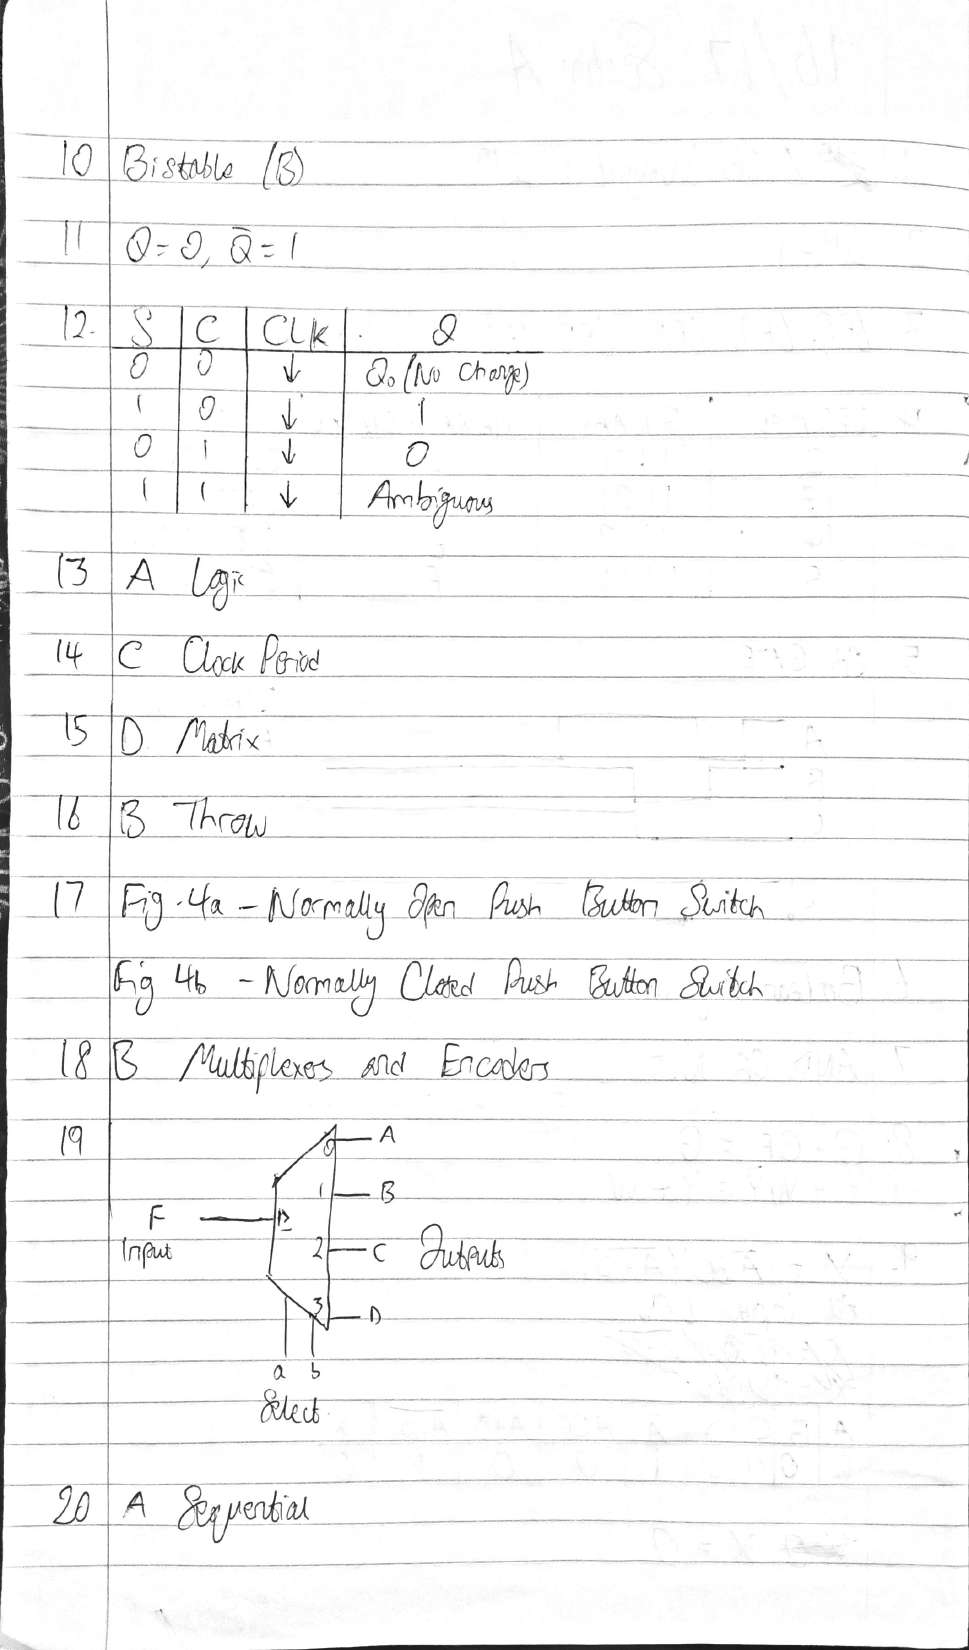 10 Bistable (B)
11 Q=0, Q̄=1
12. S C CLK Q
0 0 ↓ Q₀ (No Change)
1 0 ↓ 1
0 1 ↓ 0
1 1 ↓ Ambiguous
13 A Logic
14 C Clock Period
15 D Matrix
16 B Throw
17 Fig.4a - Normally Open Push Button Switch
Fig 4b - Normally Closed Push Button Switch
18 B Multiplexers and Encoders
19
0 A
1 B
F
Input
2 C Outputs
3 D
a b
Select
20 A Sequential